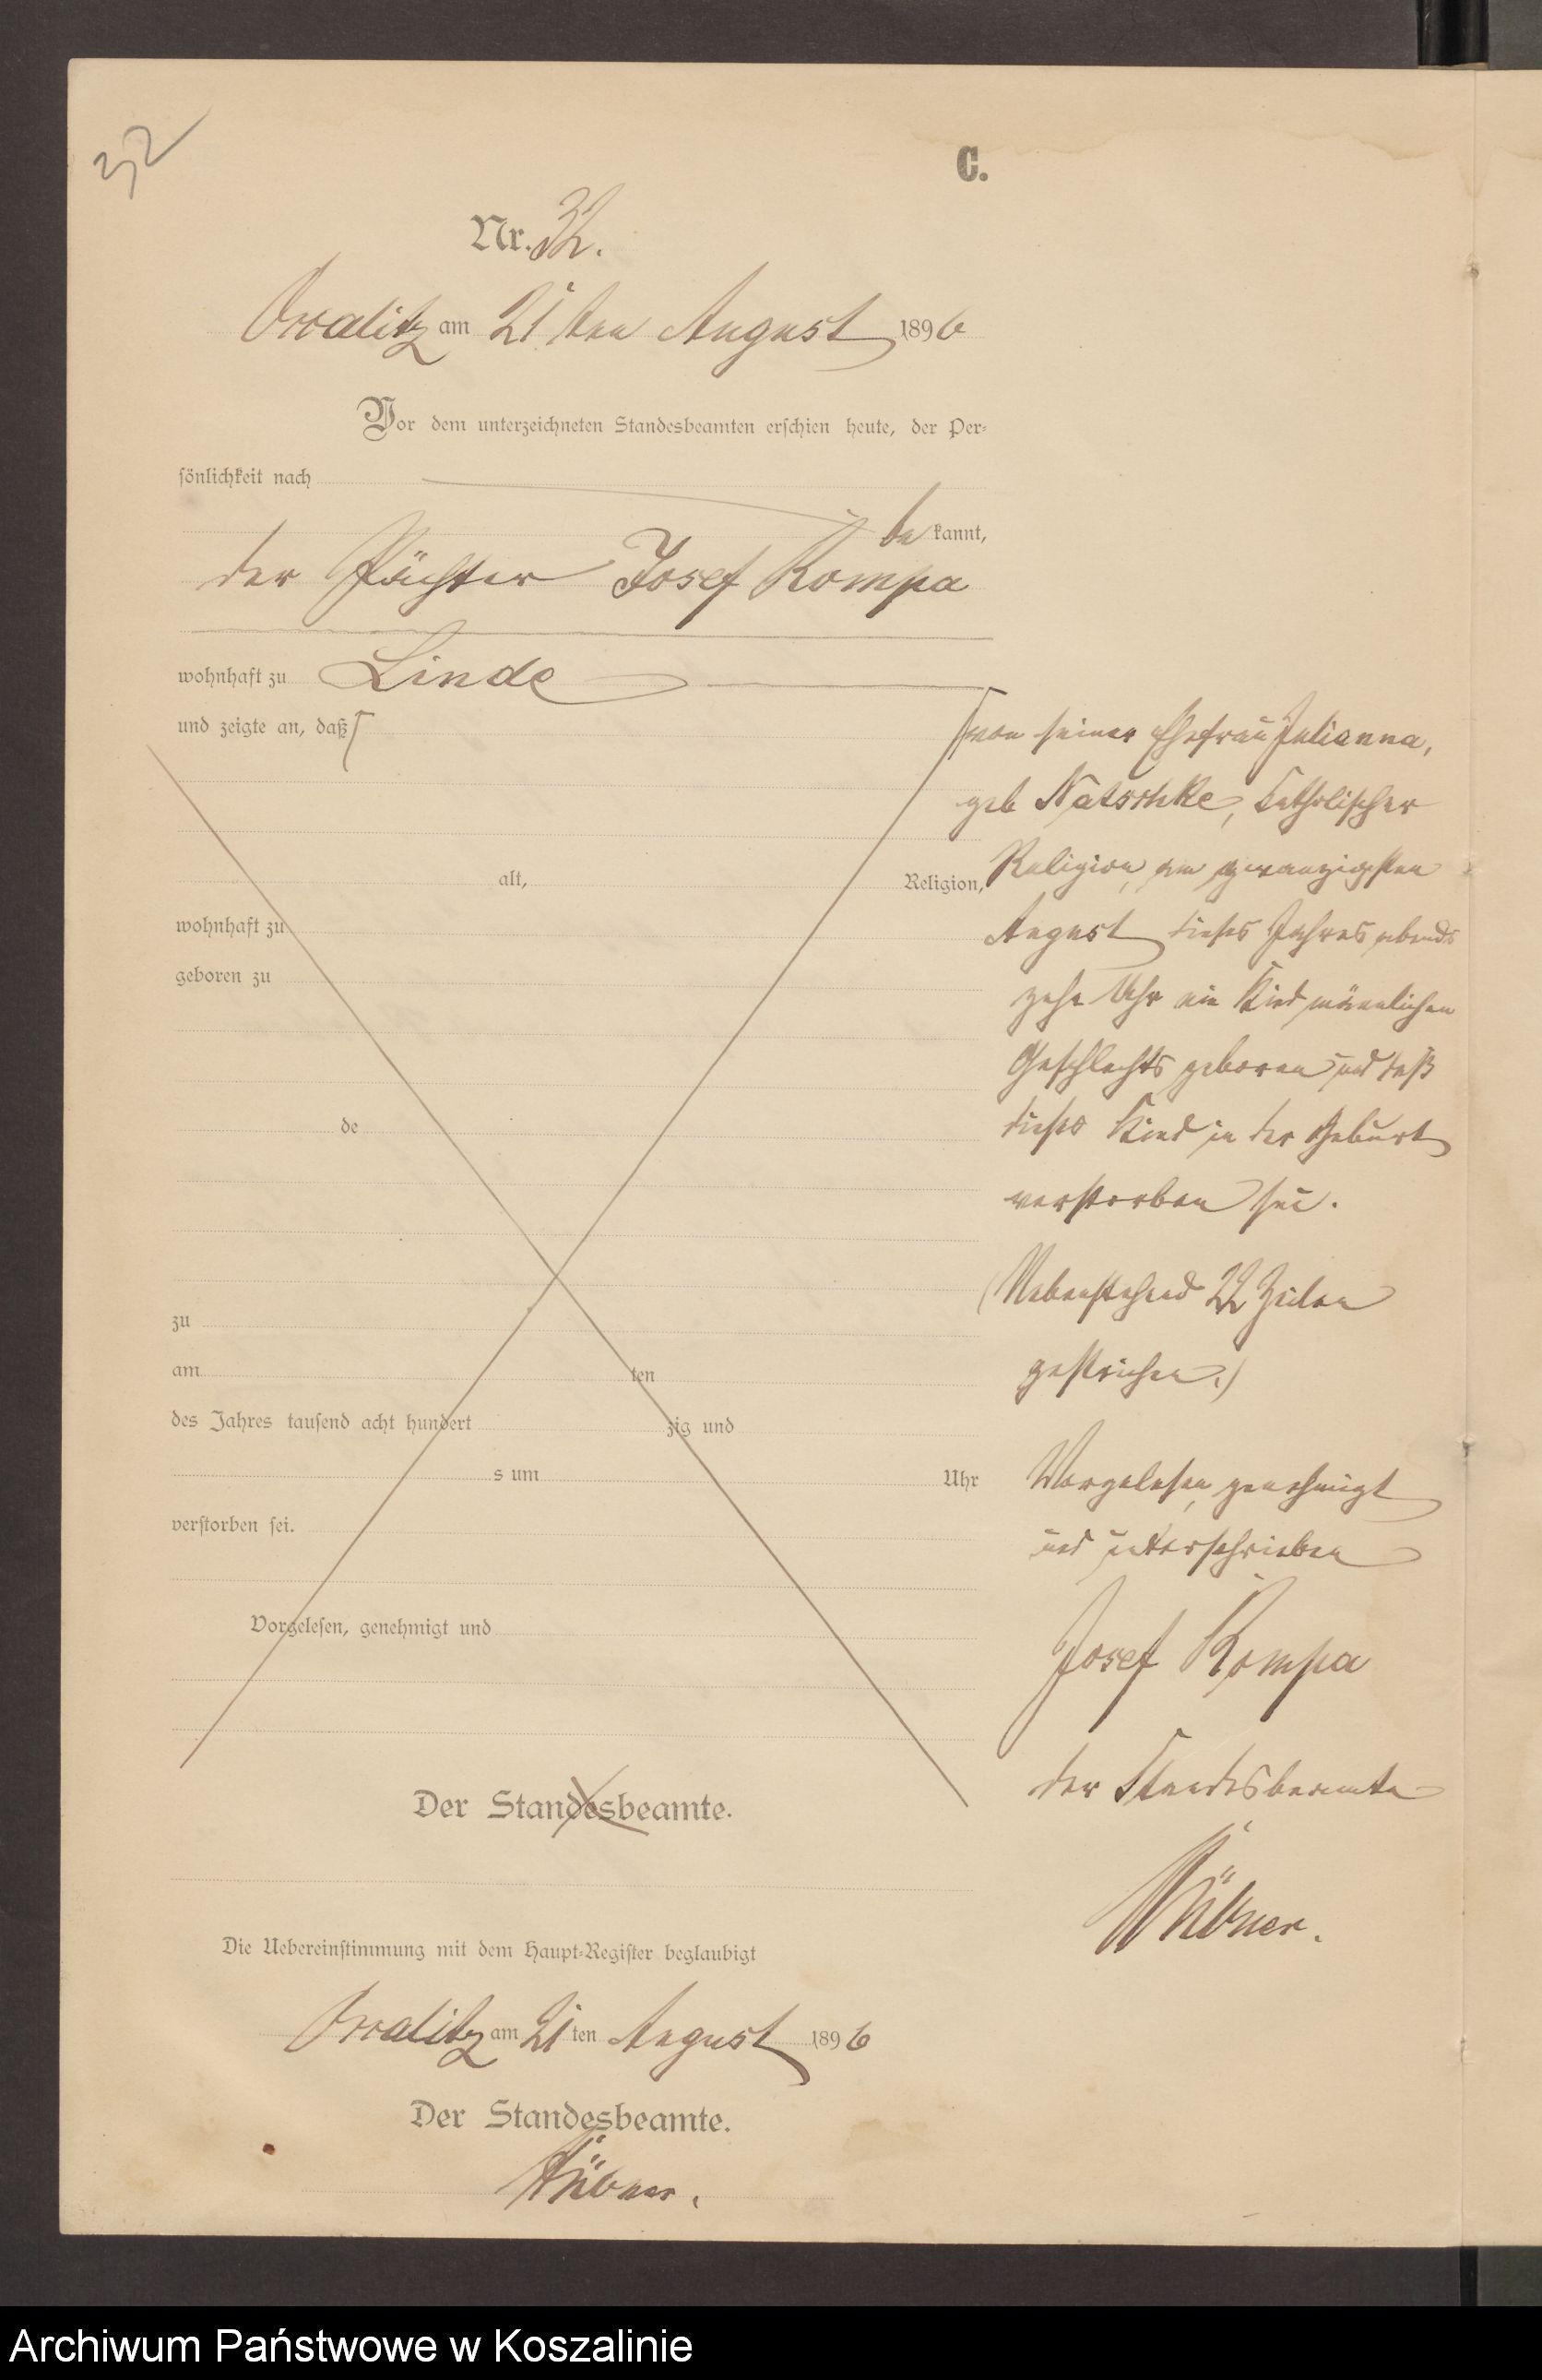 32
C.
Nr. 32.
am 21 ten August 1896
Vor dem unterzeichneten Standesbeamten erschien heute, der Per-
sönlichkeit nach
be kannt,
der Pächter Josef Kompa
wohnhaft zu Linde
und zeigte an, daß
von seiner Ehefrau Julianna,
geb Natschke, katholischer
alt, Religion, Religion, am zwanzigsten
wohnhaft zu August dieses Jahres abends
geboren zu
zehn Uhr ein Kind männlichen
Geschlechts geboren und daß
de dieses Kind in der Geburt
verstorben sei.
(Nebenstehend 22 Zeilen
zu
am ten gestrichen.)
des Jahres tausend acht hundert zig und
s um Uhr Vorgelesen, genehmigt
verstorben sei. und unterschrieben
Vorgelesen, genehmigt und
Josef Kompa
der Standesbeamte
Der Standesbeamte.
Die Uebereinstimmung mit dem Haupt-Register beglaubigt
am 21 ten August 1896
Der Standesbeamte.
Archiwum Państwowe w Koszalinie